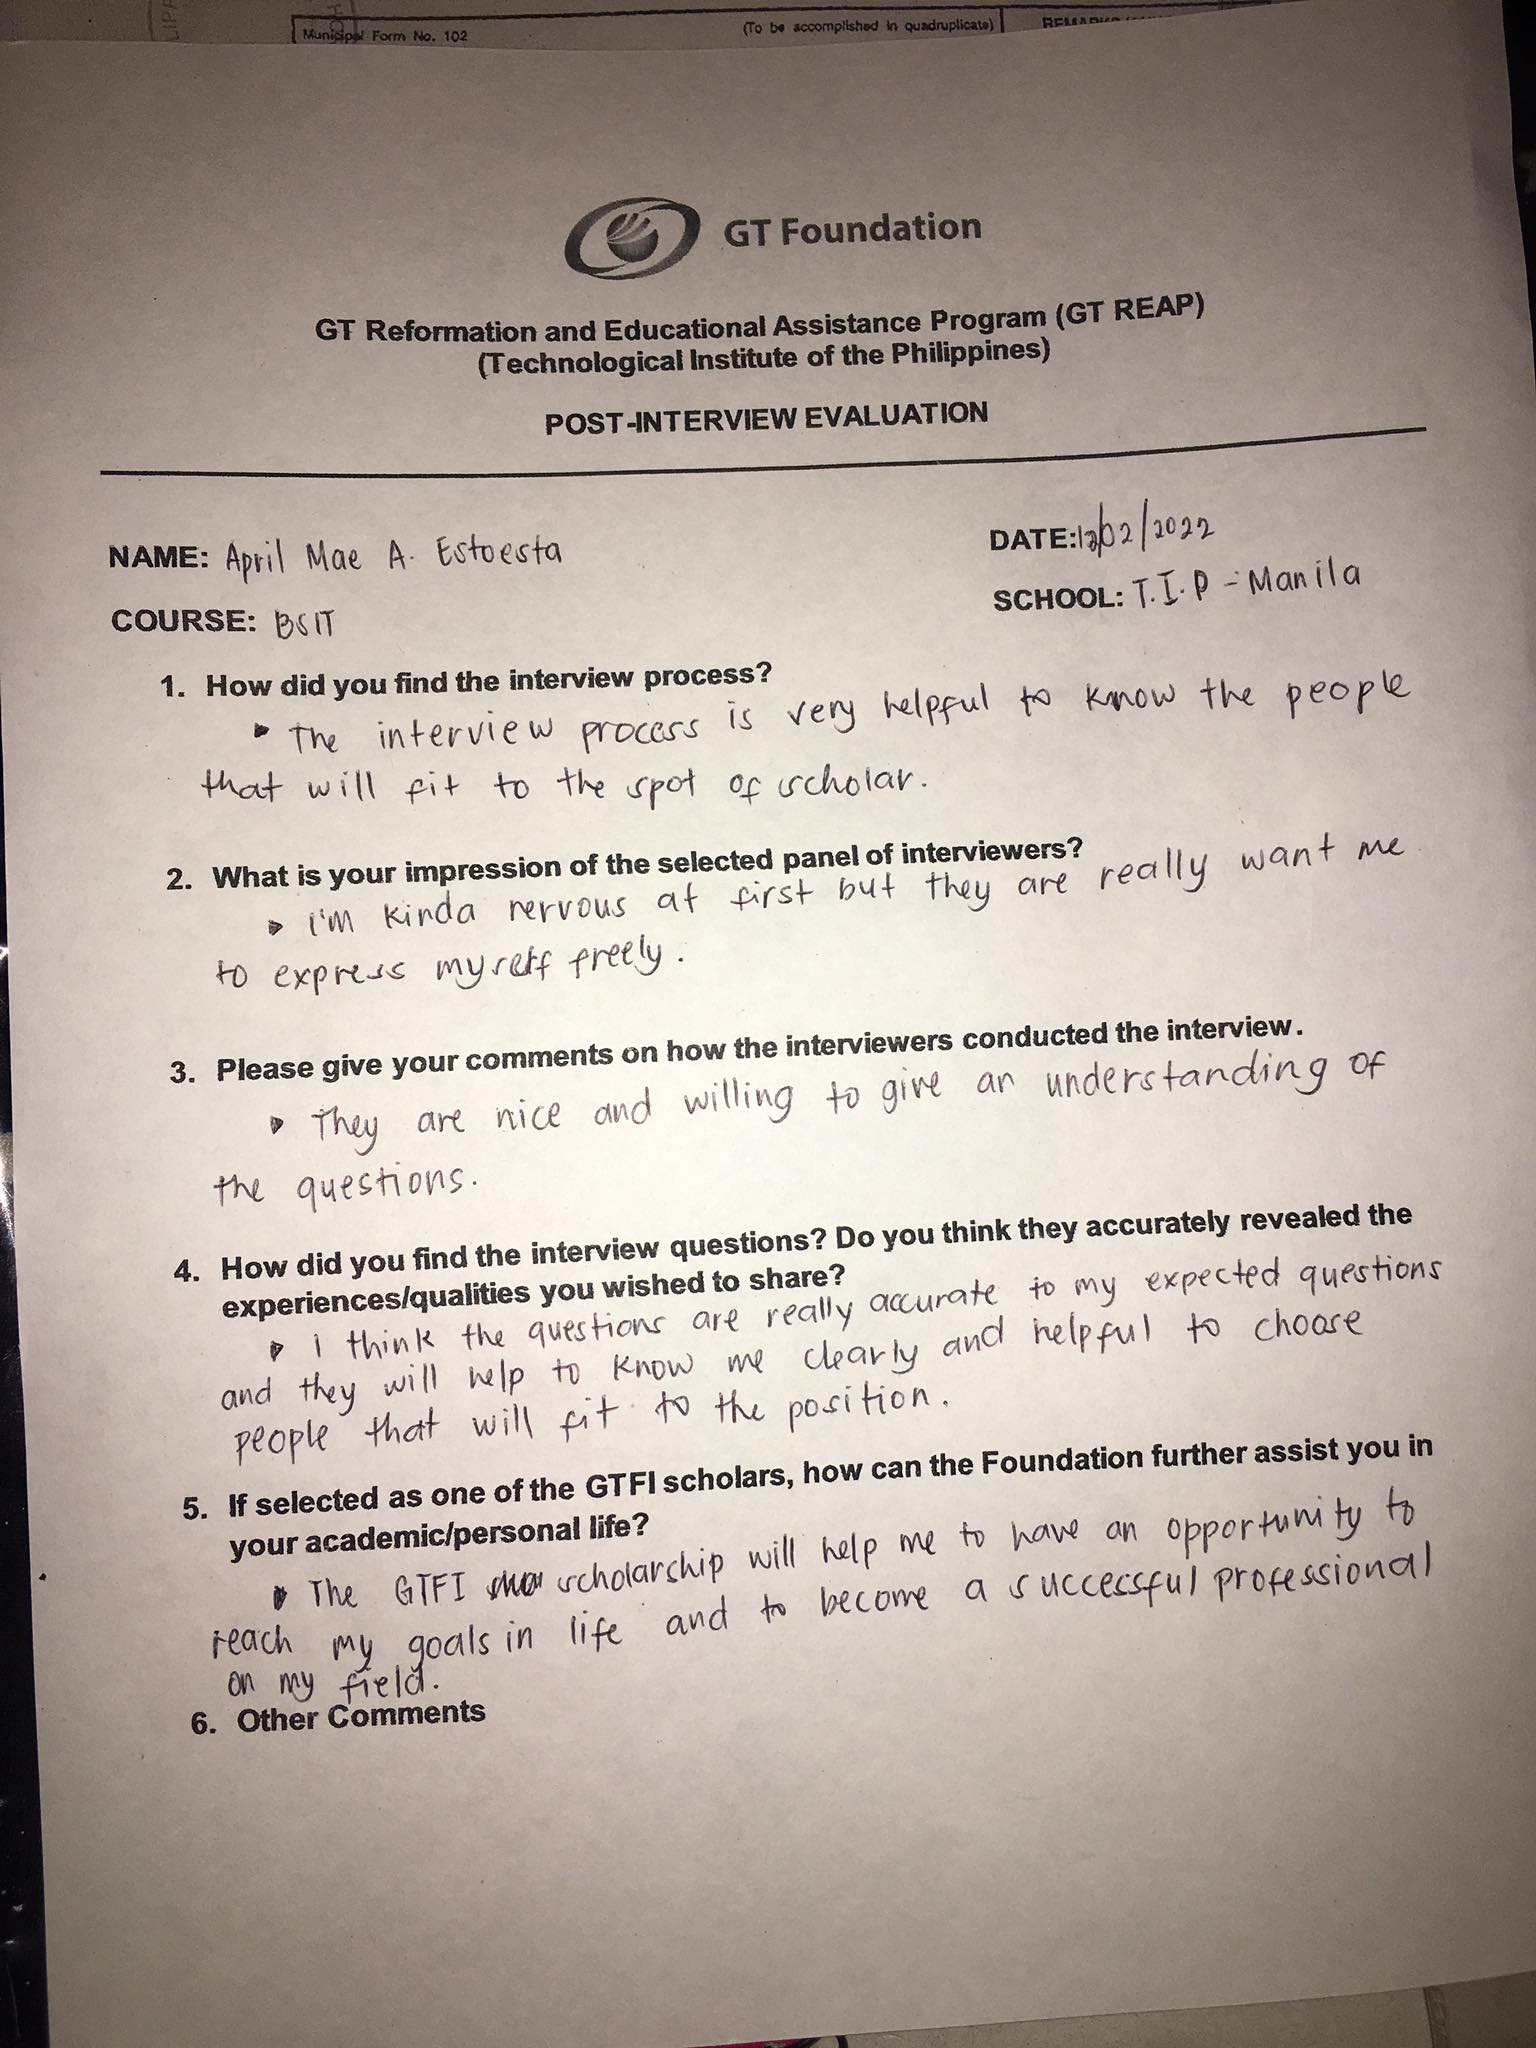 Municipal Form No. 102
(To be accomplished in quadruplicate)
GT Foundation
GT Reformation and Educational Assistance Program (GT REAP)
(Technological Institute of the Philippines)
POST-INTERVIEW EVALUATION
NAME: April Mae A. Estoesta
DATE: 12/02/2022
COURSE: BSIT
SCHOOL: T.I.P - Manila
1. How did you find the interview process?
The interview process is very helpful to know the people
that will fit to the spot of scholar.
2. What is your impression of the selected panel of interviewers?
I'm kinda nervous at first but they are really want me
to express myself freely.
3. Please give your comments on how the interviewers conducted the interview.
They are nice and willing to give an understanding of
the questions.
4. How did you find the interview questions? Do you think they accurately revealed the
experiences/qualities you wished to share?
I think the questions are really accurate to my expected questions
and they will help to know me clearly and helpful to choose
people that will fit to the position.
5. If selected as one of the GTFI scholars, how can the Foundation further assist you in
your academic/personal life?
The GTFI scholarship will help me to have an opportunity to
reach my goals in life and to become a successful professional
on my field.
6. Other Comments